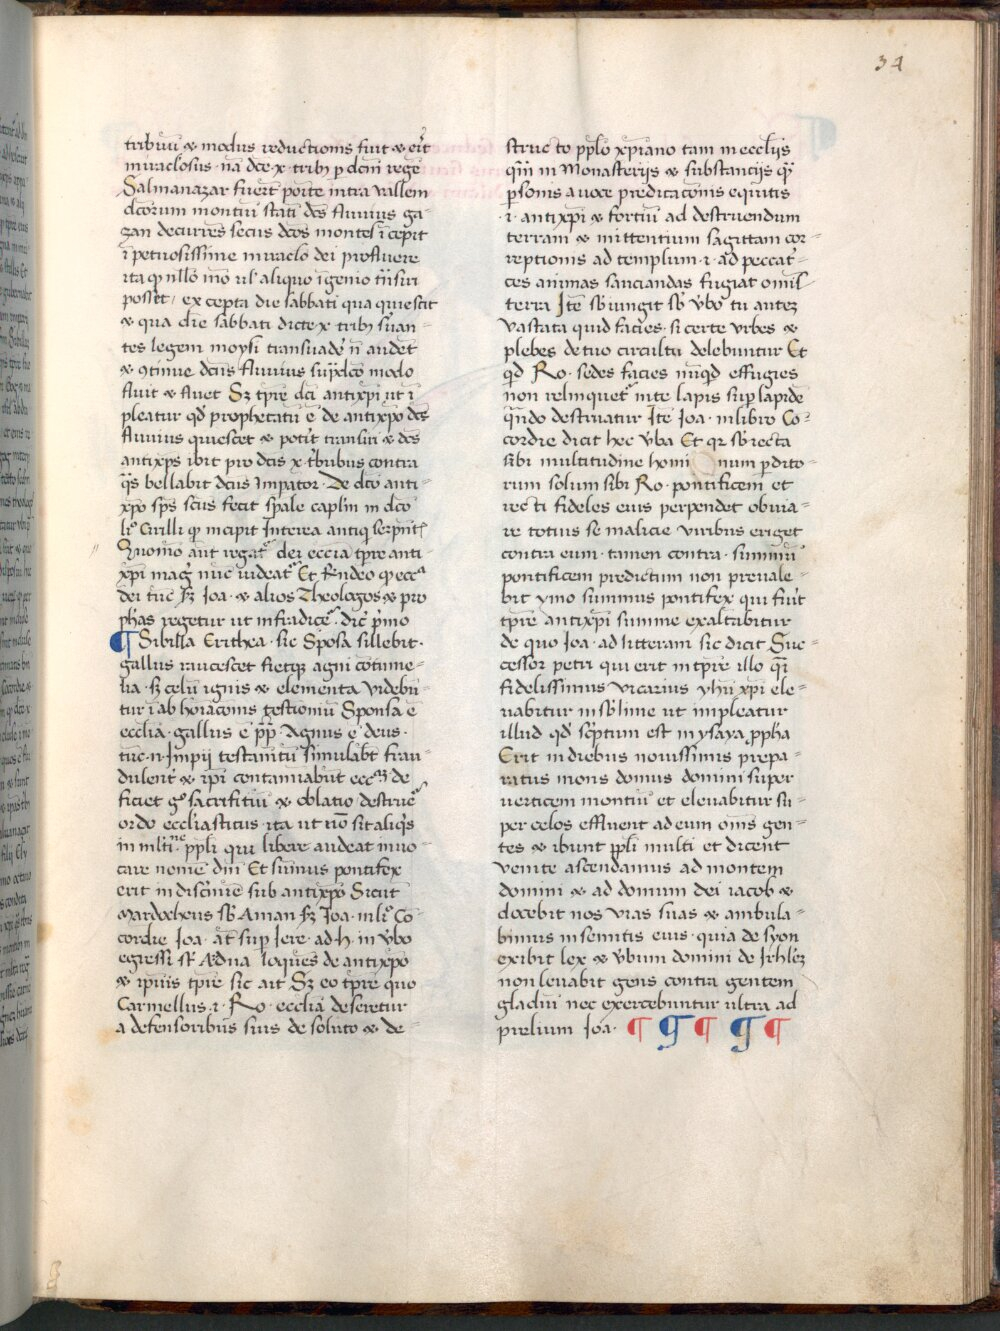 34
tribuū ⁊ modus reductionis fuit ⁊ erit
miraclosus · nā dce x tribꝫ p dcm̄ regē
Salmanazar fuert̄ posite intra vallem
dcōrum montiū stati dcs̄ fluuius ga-
zan decurrēs secus dcōs montes īcepit
īpetuosissime miraclo dei profluere
ita ꝙ nllō mō vl' aliquo īgenio trāsiri
posset / excepta die sabbati qua quiescit
⁊ qua die sabbati dicte x tribꝫ suān-
tes legem moysi transuadē n̄ audēt
⁊ ɔtinue dcūs fluuius sup̄dco modo
fluit ⁊ fluet Sꝫ tp̄re dci antixp̄i ut ī
pleatur qđ prophetatū ē de antixp̄o dcs̄
fluuius quiescet ⁊ potit transiri ⁊ dcs̄
antixp̄s ibit pro dctis x tribubus contra
q̄s bellabit dcūs Impator · De dco anti-
xp̄o sp̄s scūs fecit sp̄ale caplm̄ in dco
li° Cirilli qi incipit Interea antiq̄ serpent̄
Quomo aūt regat̄ dei ecc̄ia tp̄re anti-
xp̄i mag' nūc videat̄ Et r̄ndeo ꝙ eccᵃ
dei tūc sꝫ Ioa · ⁊ alios Theologos ⁊ pro
ph̄as regetur ut infradicet̄ · dic̄ p̄mo
¶ Sibilla Erithea · sic Sposa sillebit ·
gallus raucescet fietqꝫ agni cōtume-
lia · sꝫ celū ignis ⁊ elementa videbū-
tur
ecc̄lia · gallus ē pp̄ · Agnus ē deus ·
tūc · n · Impij testamētū simulabt̄ frau-
dulent' ⁊ ip̄i contamiabūt ecc̄ᵃꝫ de
ficiet g° sacrifitiū ⁊ oblatio destruet̄
ordo eccliasticus · ita ut nō sit aliq̄s
in mlti​ne pp̄li qui libere audeat inuo-
care nomē dn̄i Et sūmus pontifex
erit in discr̄imē sub antixp̄o Sicut
Mardocheus sb̄ Aman sꝫ Ioa · in li° Cō-
cordie Ioa · at̄ sup Iere · ad · h · in v̄bo
egressi st̄ Ædua loquēs de antixp̄o
⁊ ipius tp̄re sic ait Sꝫ eo tp̄re quo
Carmellus · i · Ro · ecclīa deseretur
a defensoribus suis desoluto ⁊ de-
structo pp̄lo xp̄iano tam in eccl̄ijs
qm̄ in Monasterijs ⁊ substancijs q̄
p̄sonis a voce predicacōnis equitis
· i · antixp̄i ⁊ fortiū ad destruendum
terram ⁊ mittentium sagittam cor-
reptionis ad templum · i · ad peccat̄-
ces animas sauciandas fugiat omīs
terra Itē sb̄iungit sb̄ v̄bo tu autē
vastata quid facies · si certe vrbes ⁊
plebes de tuo circultu delebuntur Et
qđ Ro · sedes facies nūqđ effugies
non relinquet̄ in te lapis sup lapidē
qn̄do destruatur Itē Ioa · in libro Cō-
cordie dicit hec v̄ba Et qr sb̄recta
sibi multitudine homi num p̄dito-
rum solum sibi Ro · pontificem et
recti fideles eius perpendet obuia-
re totius se malicie viribus eriget
contra eum · tamen contra · summū
pontificem predictum non preuale-
bit ymo summus pontifex qui fuit
tp̄re antixp̄i summe exaltabitur
de quo Ioa · ad litteram sic dicit Suc-
cessor petri qui erit in tp̄re illo q̄i
fidelissimus vicarius yhū xp̄i ele-
uabitur in sb̄lime ut impleatur
illud qđ sc̄ptum est in ysaya ppha
Erit in diebus nouissimis prepa-
ratus mons domus domini super
verticem montiū et eleuabitur su-
per celos effluent ad eum om̄s gen-
tes ⁊ ibunt pp̄li multi et dicent
venite ascendamus ad montem
domini ⁊ ad domum dei iacob ⁊
docebit nos vias suas ⁊ ambula-
bimus in semitis eius · quia de syon
exibit lex ⁊ v̄bum domini de Irhlꝫ
non leuabit gens contra gentem
gladiū nec exercebuntur ultra ad
prelium Ioa · ¶ ¶ ¶ ¶ ¶